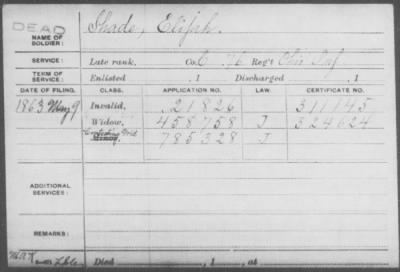 DEAD
NAME OF SOLDIER: Shade, Elijah.
SERVICE: Late rank, Co. C 76 Reg't Ohio Inf
TERM OF SERVICE: Enlisted , 1 Discharged , 1
DATE OF FILING. CLASS. APPLICATION NO. LAW. CERTIFICATE NO.
1863 May 9 Invalid, 21826 311145
Widow, 458758 J 324624
Contesting Wid 785328 J
ADDITIONAL SERVICES:
REMARKS:
Died , 1 , at